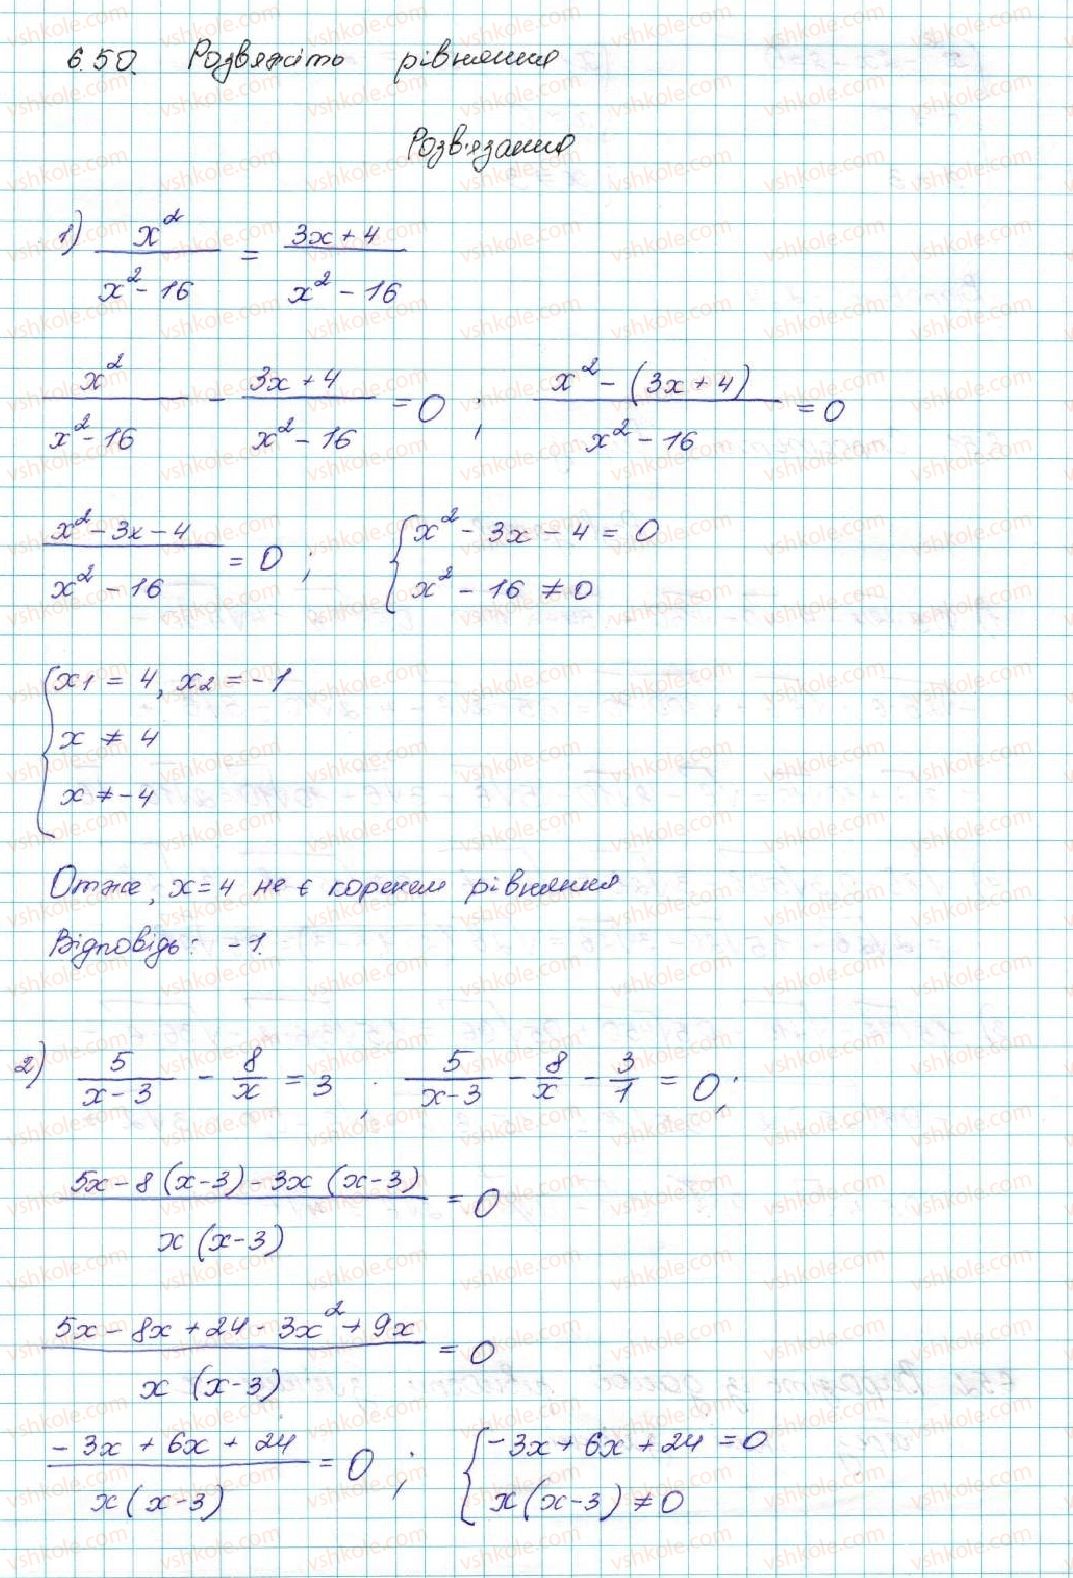 6.50. Розв'яжіть рівняння
Розв'язання
1) x²/(x² - 16) = (3x + 4)/(x² - 16)
x²/(x² - 16) - (3x + 4)/(x² - 16) = 0 ; (x² - (3x + 4))/(x² - 16) = 0
(x² - 3x - 4)/(x² - 16) = 0 ; { x² - 3x - 4 = 0
x² - 16 ≠ 0
{ x1 = 4, x2 = -1
x ≠ 4
x ≠ -4
Отже, x = 4 не є коренем рівняння
Відповідь: -1.
2) 5/(x - 3) - 8/x = 3 ; 5/(x - 3) - 8/x - 3/1 = 0 ;
(5x - 8(x - 3) - 3x(x - 3))/(x(x - 3)) = 0
(5x - 8x + 24 - 3x² + 9x)/(x(x - 3)) = 0
(-3x + 6x + 24)/(x(x - 3)) = 0 ; { -3x + 6x + 24 = 0
x(x - 3) ≠ 0
vshkole.com